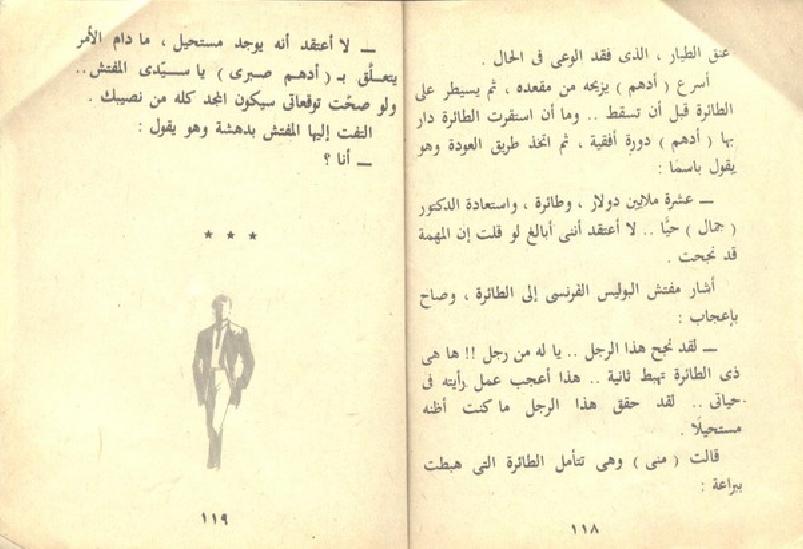 عنق الطيار ، الذى فقد الوعى فى الحال .
أسرع ( أدهم ) يزيحه من مقعده ، ثم يسيطر على
الطائرة قبل أن تسقط .. وما أن استقرت الطائرة دار
بها ( أدهم ) دورة أفقية ، ثم اتخذ طريق العودة وهو
يقول باسمًا :
ــ عشرة ملايين دولار ، وطائرة ، واستعادة الدكتور
( جمال ) حيًّا .. لا أعتقد أننى أبالغ لو قلت إن المهمة
قد نجحت .
أشار مفتش البوليس الفرنسى إلى الطائرة ، وصاح
بإعجاب :
ــ لقد نجح هذا الرجل .. يا له من رجل !! ها هى
ذى الطائرة تهبط ثانية .. هذا أعجب عمل رأيته فى
حياتى .. لقد حقق هذا الرجل ما كنت أظنه
مستحيلًا .
قالت ( منى ) وهى تتأمل الطائرة التى هبطت
ببراعة :
١١٨
ــ لا أعتقد أنه يوجد مستحيل ، ما دام الأمر
يتعلّق بـ ( أدهم صبرى ) يا سيّدى المفتش ..
ولو صحّت توقعاتى سيكون المجد كله من نصيبك .
التفت إليها المفتش بدهشة وهو يقول :
ــ أنا ؟
★ ★ ★
١١٩